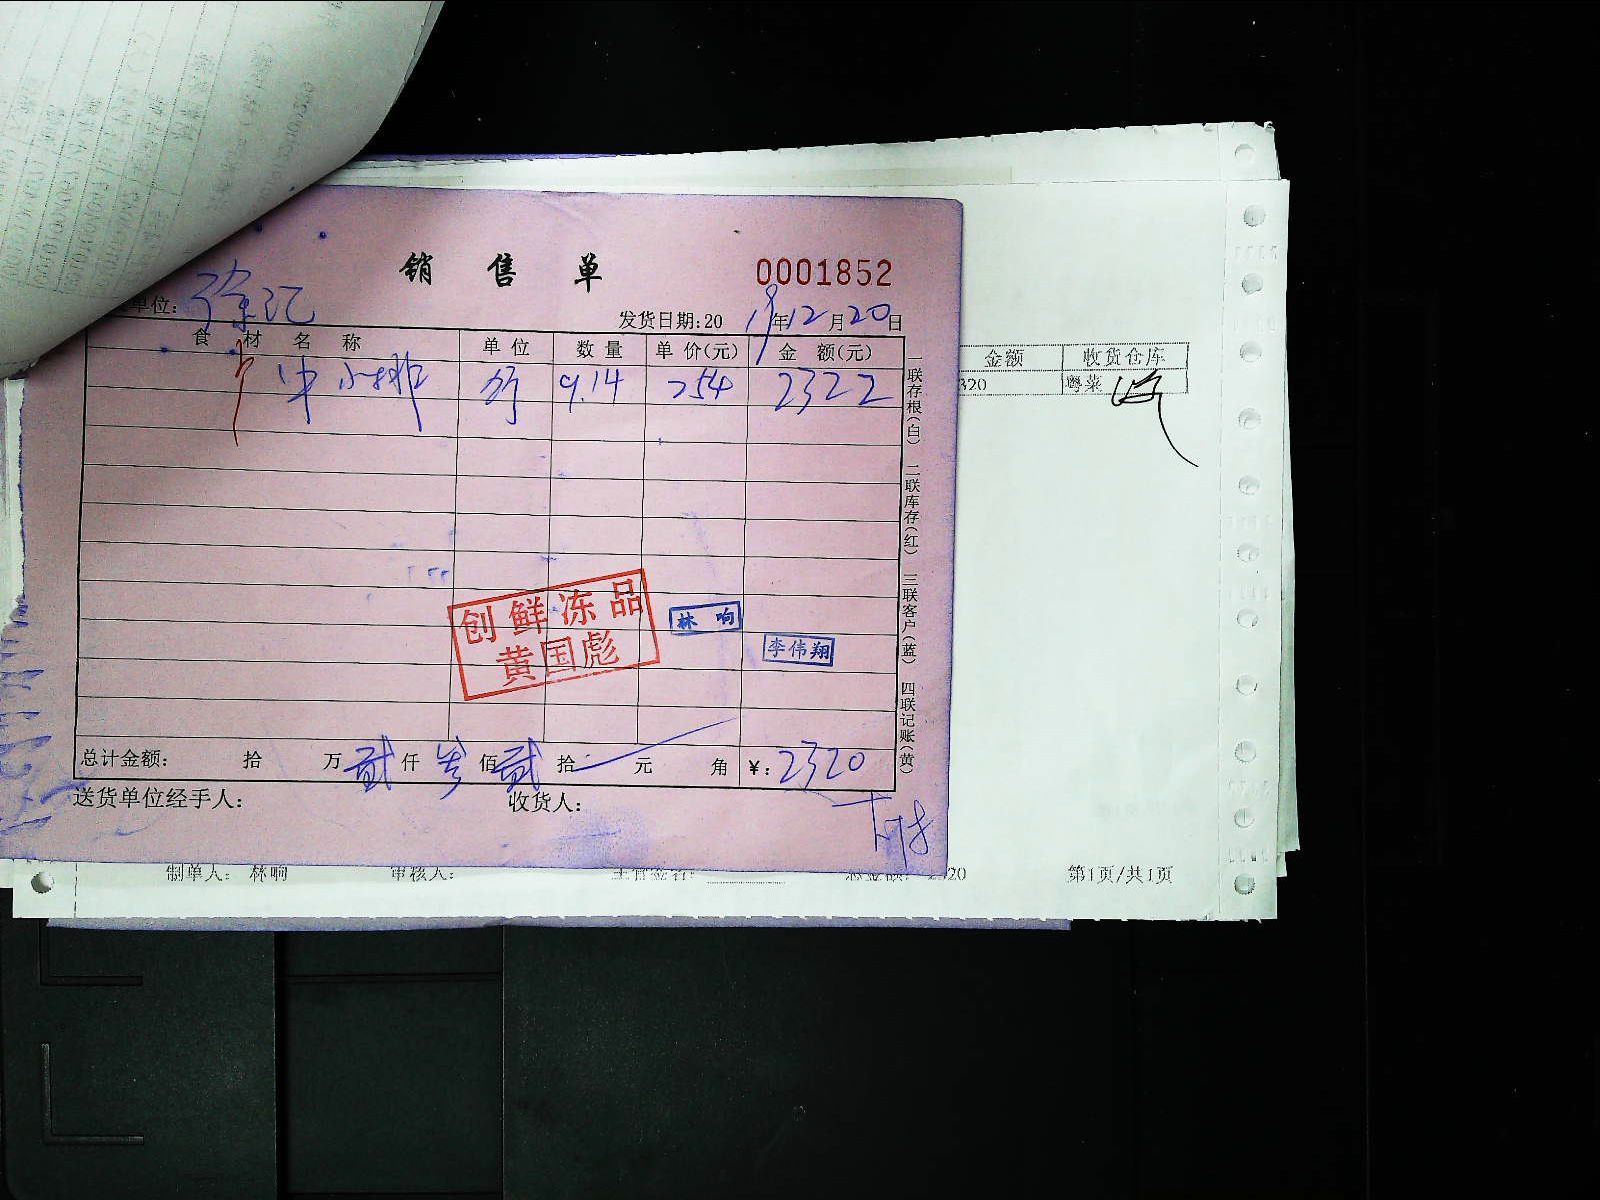 销售单
0001852
单位: 徐汇
发货日期:20 19年12月20日
食材名称 单位 数量 单价(元) 金额(元)
牛小排 斤 9.14 254 2322
一联存根(白) 二联库存(红) 三联客户(蓝) 四联记账(黄)
金额 收货仓库
320 粤菜
创鲜冻品
黄国彪
林响
李伟翔
总计金额: 拾 万 贰 仟 叁 佰 贰 拾 元 角 ¥: 2320
送货单位经手人: 收货人:
制单人: 林响 审核人: 主管签名: 总金额: 2320 第1页/共1页